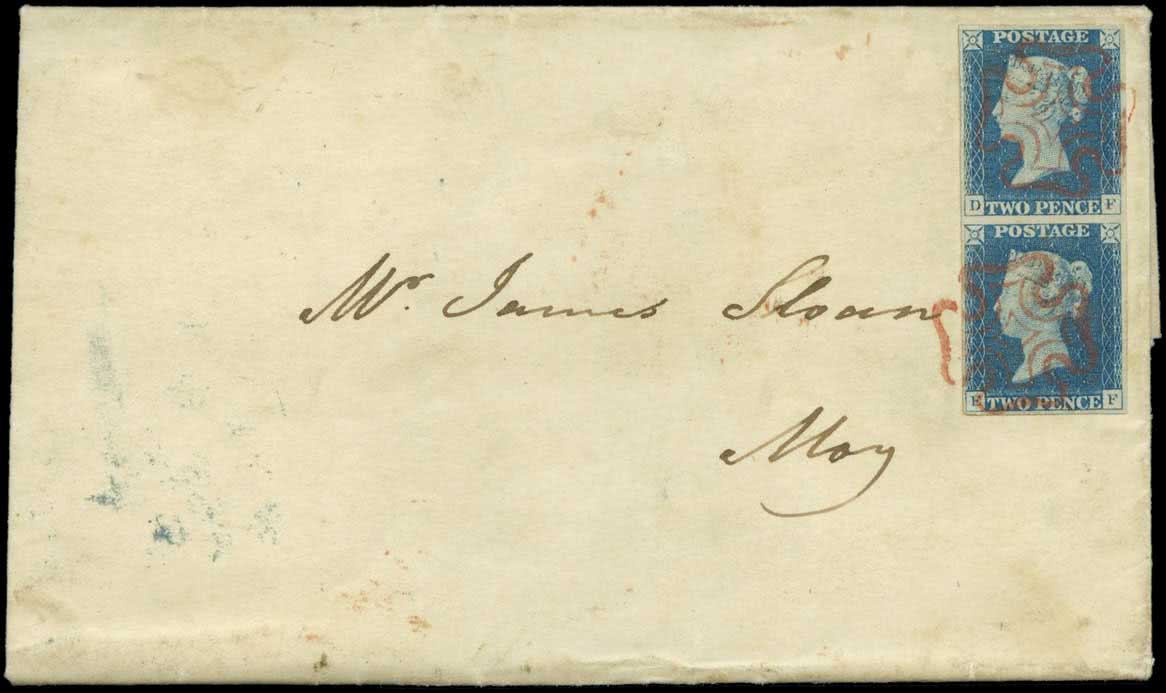 POSTAGE
D TWO PENCE F
POSTAGE
E TWO PENCE F
Mr. James Sloan
Moy